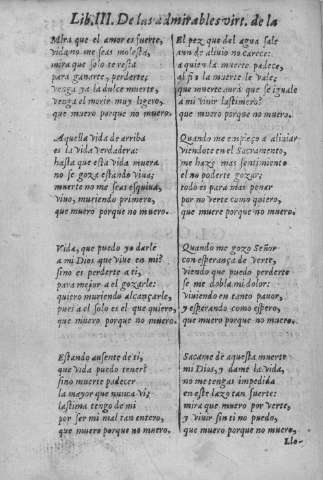 Lib. III. De las admirables virt. de la
Mira que el amor es fuerte,
vida no me seas molesta,
mira que solo te resta
para ganarte, perderte;
venga ya la dulce muerte,
venga el morir muy ligero,
que muero porque no muero.
Aquella vida de arriba
es la vida verdadera:
hasta que esta vida muera
no se goza estando viua;
muerte no me seas esquiua,
viuo, muriendo primero,
que muero porque no muero.
Vida, que puedo yo darle
a mi Dios que viue en mi?
sino es perderte a ti,
para mejor a el gozarle:
quiero muriendo alcançarle,
pues a el solo es el que quiero,
que muero porque no muero.
Estando ausente de ti,
que vida puedo tener?
sino muerte padecer
la mayor que nunca vi;
lastima tengo de mi
por ser mi mal tan entero,
que muero porque no muero.
El pez que del agua sale
aun de aliuio no carece:
a quien la muerte padece,
al fin la muerte le vale;
que muerte aurà que se iguale
a mi viuir lastimero?
que muero porque no muero.
Quando me empieço a aliuiar
viendote en el Sacramento,
me haze mas sentimiento
el no poderte gozar;
todo es para mas penar
por no verte como quiero,
que muero porque no muero.
Quando me gozo Señor
con esperança de verte,
viendo que puedo perderte
se me dobla mi dolor:
viuiendo en tanto pauor,
y esperando como espero,
que muero porque no muero.
Sacame de aquesta muerte
mi Dios, y dame la vida,
no me tengas impedida
en este lazo tan fuerte:
mira que muero por verte,
y viuir sin ti no puedo,
que muero porque no muero.
Llo-